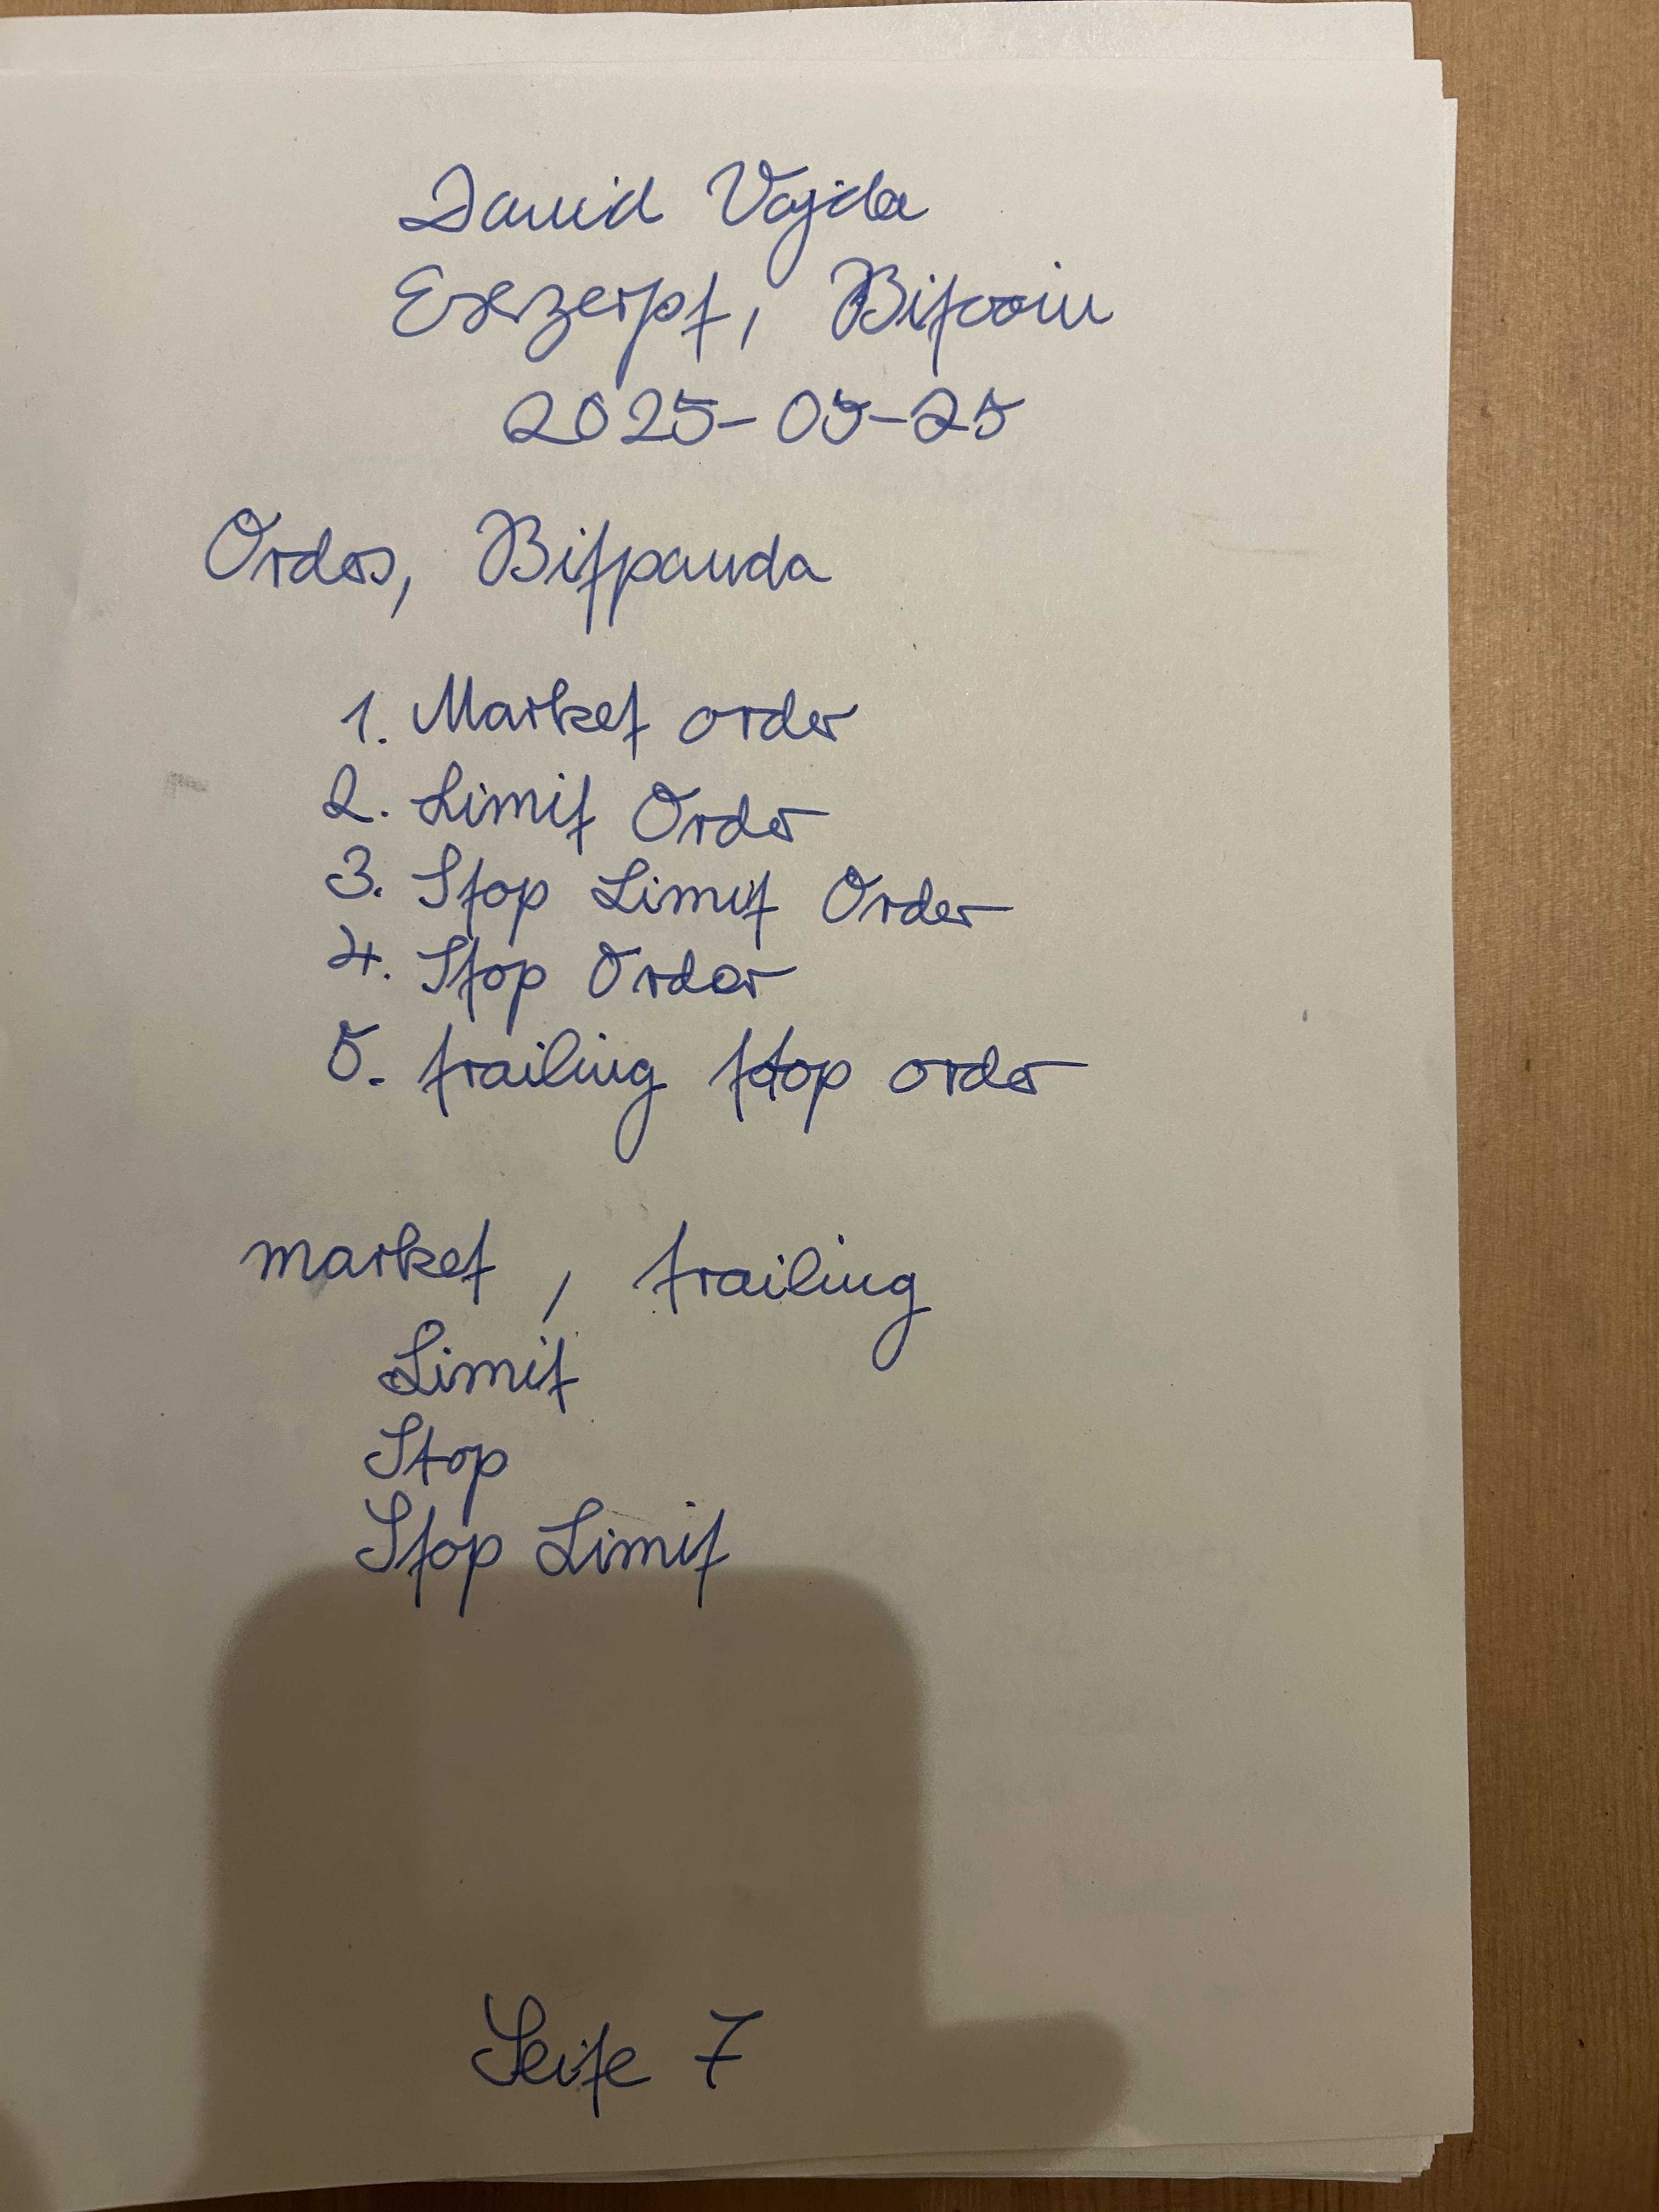 David Vajda
Exzerpt, Bitcoin
2025-05-25
Orders, Bitpanda
1. Market order
2. Limit Order
3. Stop Limit Order
4. Stop Order
5. trailing stop order
market, trailing
Limit
Stop
Stop Limit
Seite 7